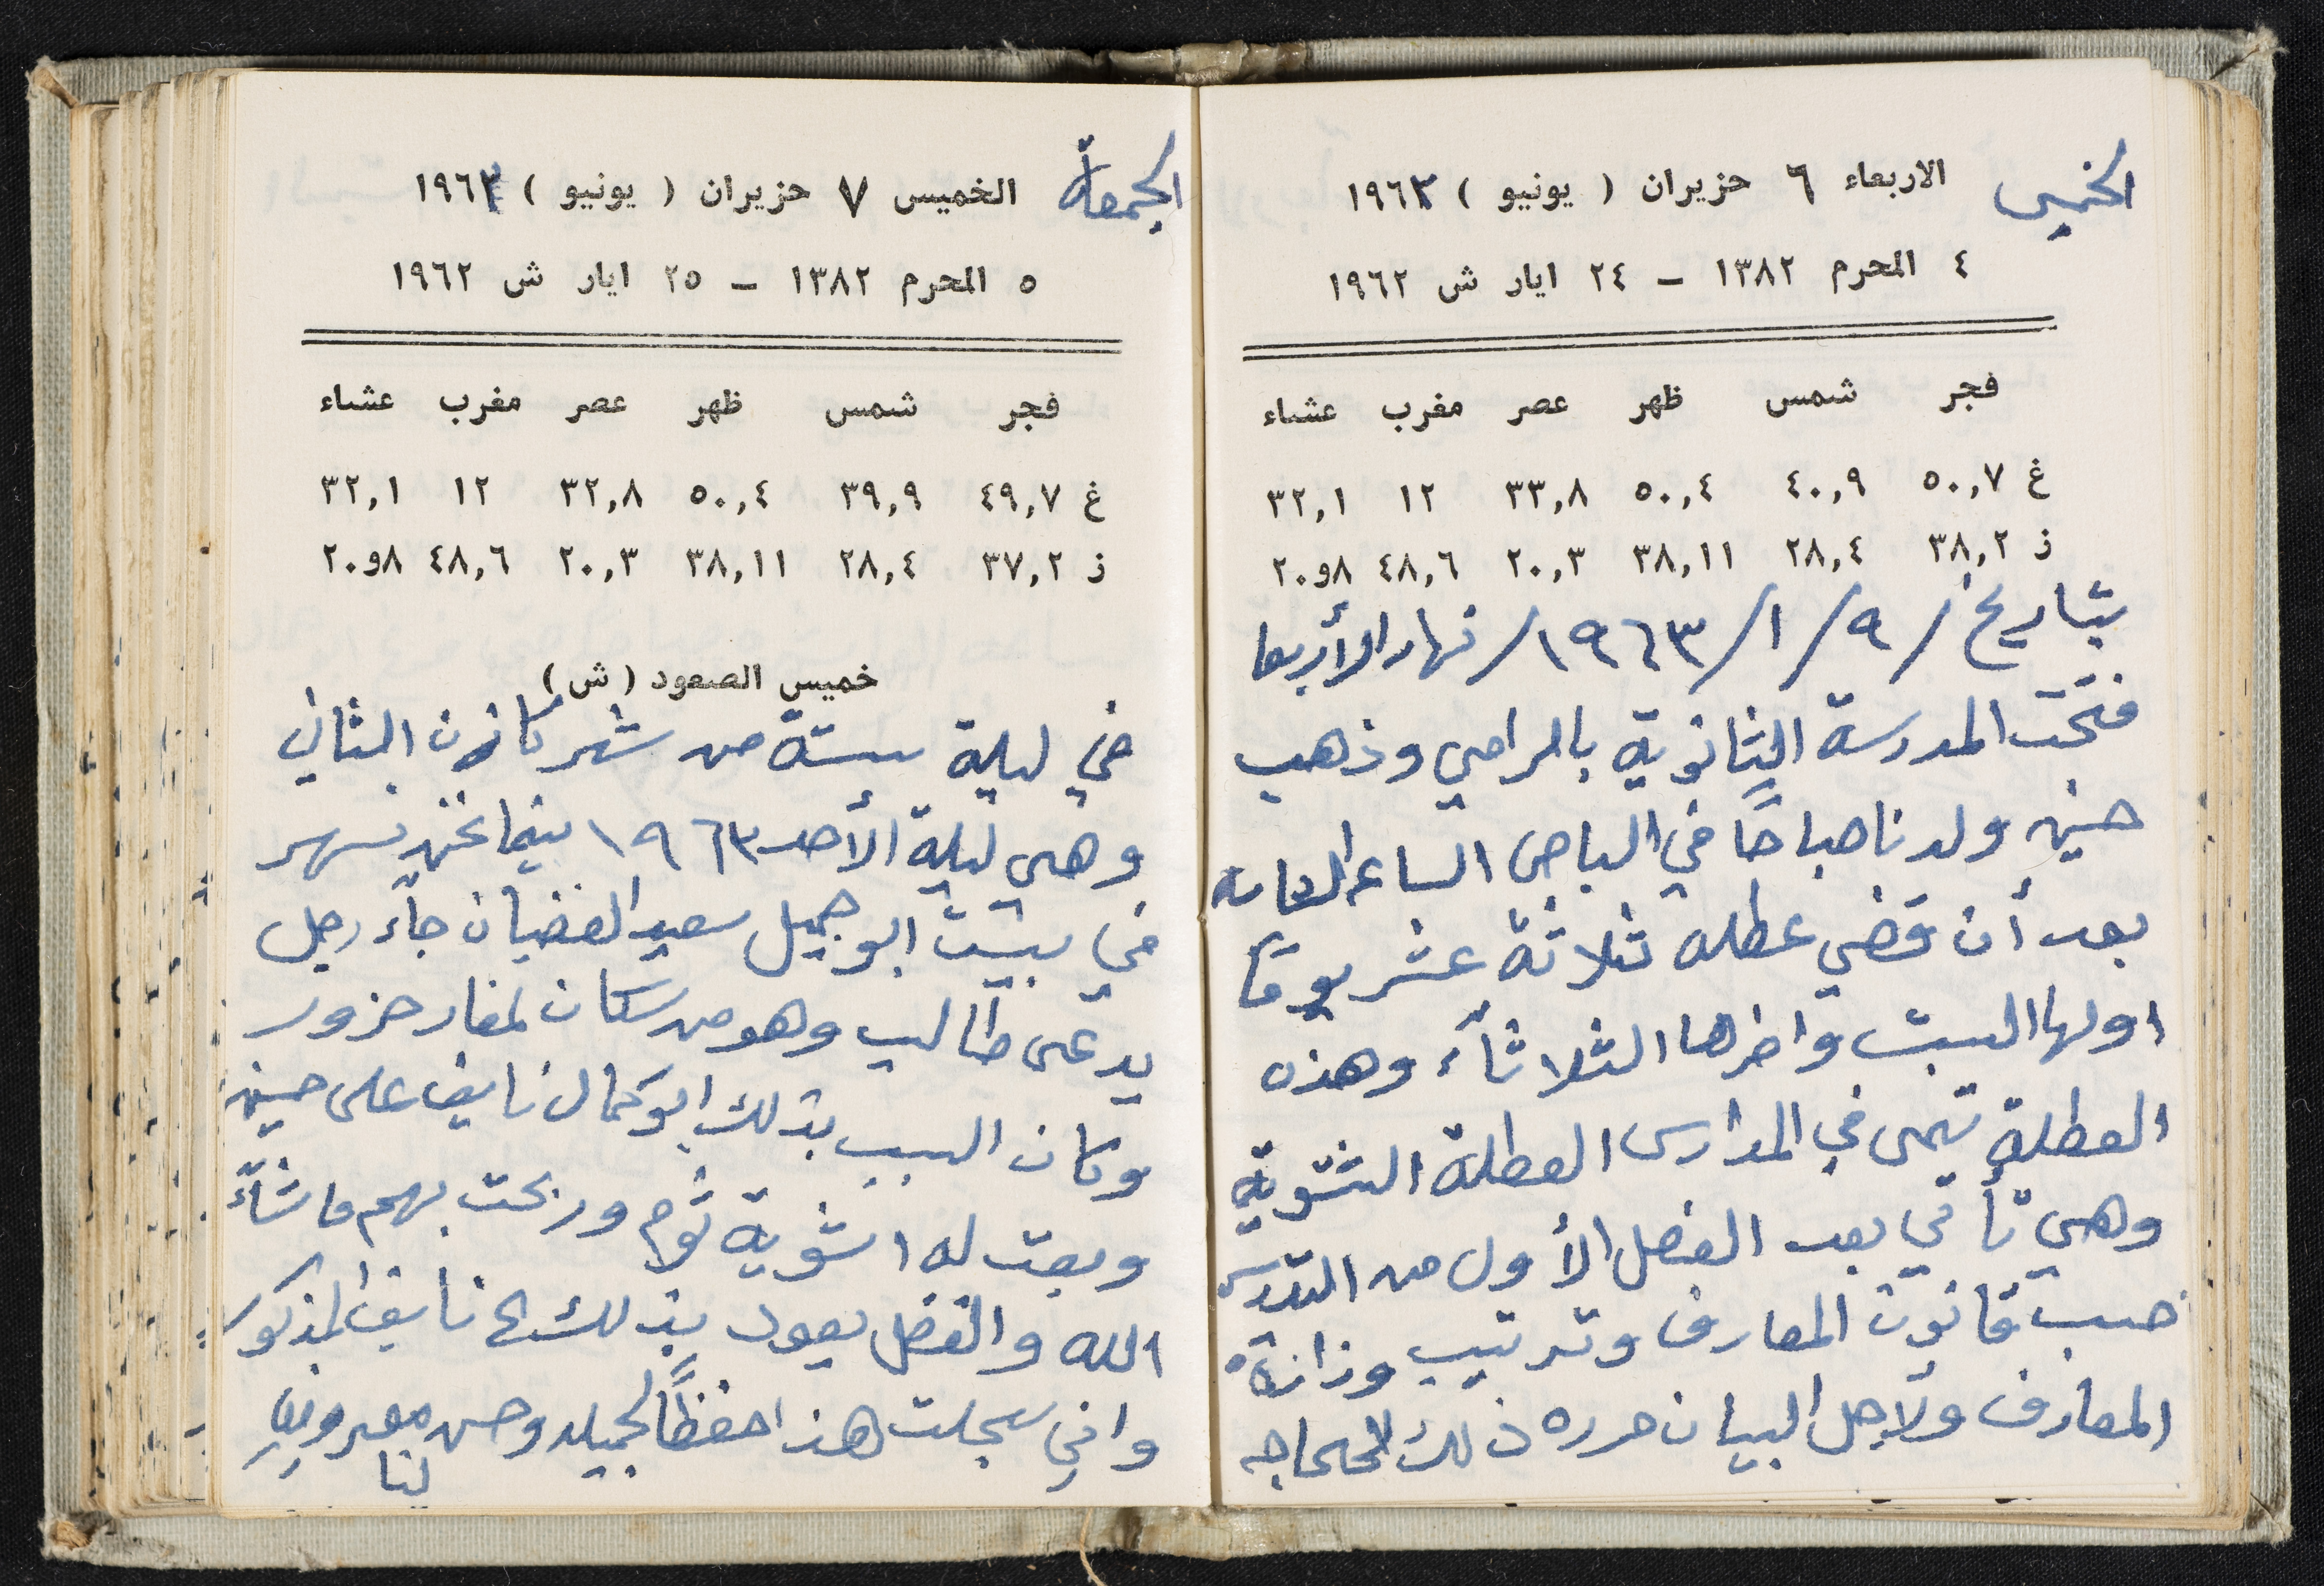 الخميس الاربعاء ٦ حزيران ( يونيو ) ١٩٦٣
٤ المحرم ١٣٨٢ – ٢٤ ايار ش ١٩٦٢
فجر شمس ظهر عصر مغرب عشاء
غ ٥٠,٧ ٤٠,٩ ٥٠,٤ ٣٣,٨ ١٢ ٣٢,١
ذ ٣٨,٢ ٢٨,٤ ٣٨,١١ ٢٠,٣ ٤٨,٦ ٨و٢٠
بتاريخ /٩/١/١٩٦٣/ نهار الأربعا
فتحت المدرسة الثانوية بالرامي وذهب
حنين ولدنا صباحًا في الباص الساعه
بعد أن قضي عطله ثلاثة عشر يومًا
اولها السبت واخرها الثلاثآء وهذه
العطلة تسمى في المدارس العطلة الشتوية
وهي تأتي بعد الفصل الأول من التدريس
حسب قانون المعارف وترتيب وزارة
المعارف ولاجل البيان حرره ذلك للحاجه
الجمعة الخميس ٧ حزيران ( يونيو ) ١٩٦٣
٥ المحرم ١٣٨٢ – ٢٥ ايار ش ١٩٦٢
فجر شمس ظهر عصر مغرب عشاء
غ ٤٩,٧ ٣٩,٩ ٥٠,٤ ٣٢,٨ ١٢ ٣٢,١
ذ ٣٧,٢ ٢٨,٤ ٣٨,١١ ٢٠,٣ ٤٨,٦ ٨و٢٠
خميس الصعود (ش)
في ليلة ستة من شهر كانون الثاني
وهي ليلة الأحد ١٩٦٣ بينما نحن نسهر
في بيت ابو جميل سعيد الغضبان جآء رجل
يدعى طالب وهو من سكان لمغار حزور
وكان السبب بذلك ابو كمال نايف على حسين
وبعت له اشوية ثوم وربحت بهم ماشآء
الله والفضل يعود بذلك نايف المذكور
واني سجلت هذا حفظًا لجميله وحسن معروفه
لنا